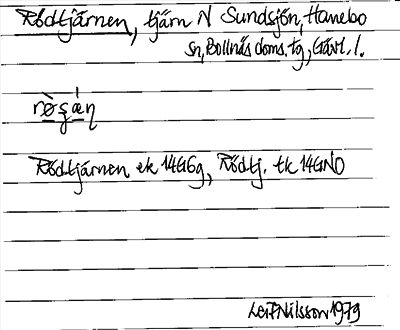 Rödtjärnen, tjärn N Sundsjön, Hanebo
sn, Bollnäs doms. tg, Gävl. l.
Rödtjärnen ek 14G6g, Rödtj. tk 14GNO
Leif Nilsson 1979